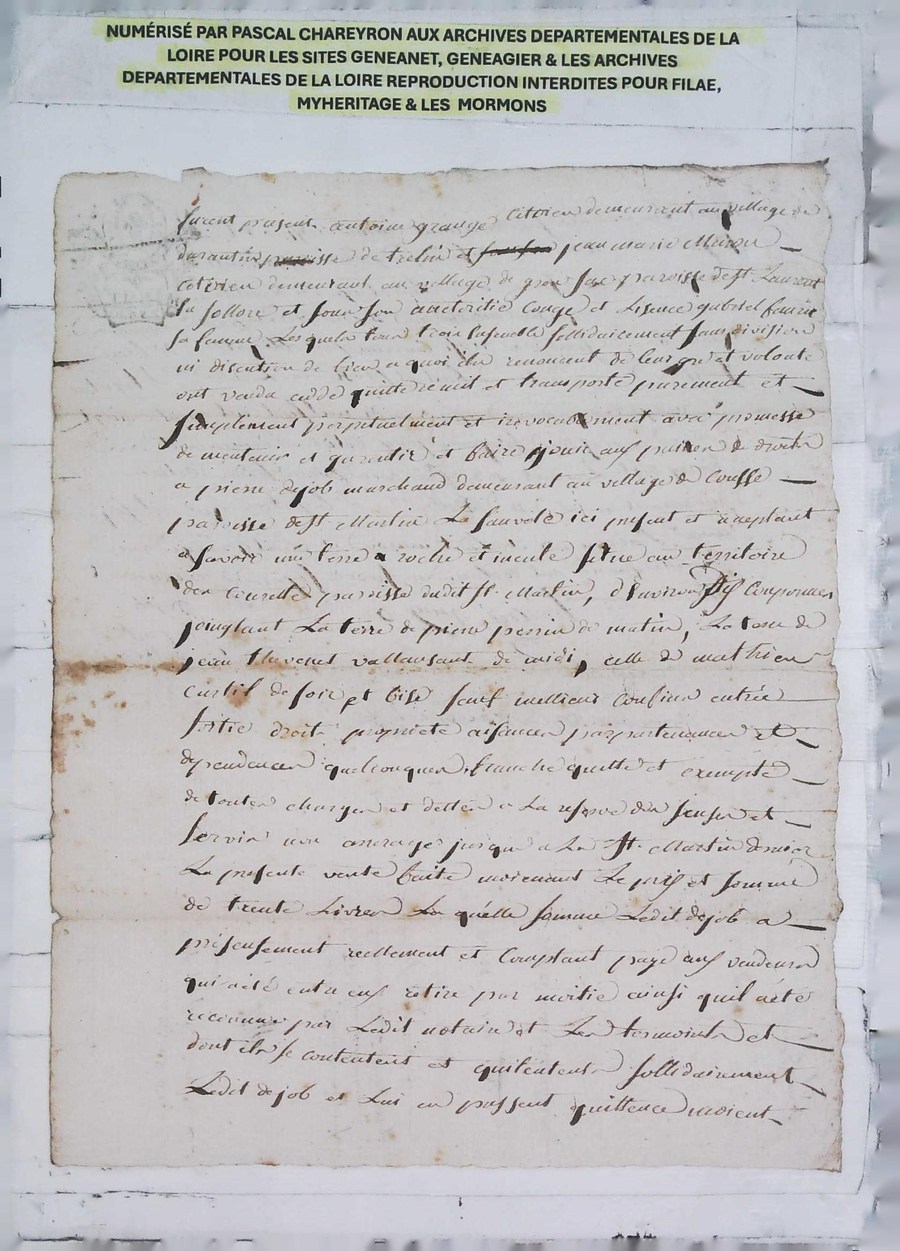 NUMÉRISÉ PAR PASCAL CHAREYRON AUX ARCHIVES DEPARTEMENTALES DE LA
LOIRE POUR LES SITES GENEANET, GENEAGIER & LES ARCHIVES
DEPARTEMENTALES DE LA LOIRE REPRODUCTION INTERDITES POUR FILAE,
MYHERITAGE & LES MORMONS
furent present antoine grange Citoien demeurant au village de
durantin de trelin et jean marie
Citoien demeurant au village de paroisse de St Laurent
la sollore et sous son auctoritie Conge et Lisence gabriel
sa femme Lesquels tous trois Ensemble sollidairement sans division
ni discution de bien a quoi ils renoncent de leur gré et volonte
ont vendu cedde quitte remit et transporté purement et
simplement perpetuellement et irevocablement avec promesse
de mentenir et garentir et faire jouir aux peines de droit
a pierre dejob marchand demeurant au village de Cousse
paroisse de St Martin La sauveté ici present et aceptant
a savoir une terre a roche et inculte situe au territoire
des paroisse dudit St. Martin, d'Environ six Couponnees
joingtant La terre de pierre perrin de matin, La terre de
jean thevenet vallansant de midi, celle de mathieu
Curtil de soir et bise sauf mellieur Confins entrée
sortie droit propriete aisances et
dependences quelconques franche quitte et exempte
de toutes charges et dettes a La reserve des et
servis non arerages jusqu a La St. Martin dernier
La presente vente faite moienent Le prix et somme
de trente Livres La quelle somme Ledit dejob a
presensement reellement et Comptant paye aux vendeurs
qui a été entre eux retire par moitie ainsi quil a été
reconnu par Ledit notaire et Les temoins et
dont ils se contentent et quitentens sollidairement
Ledit dejob et Lui en passent quittence moient